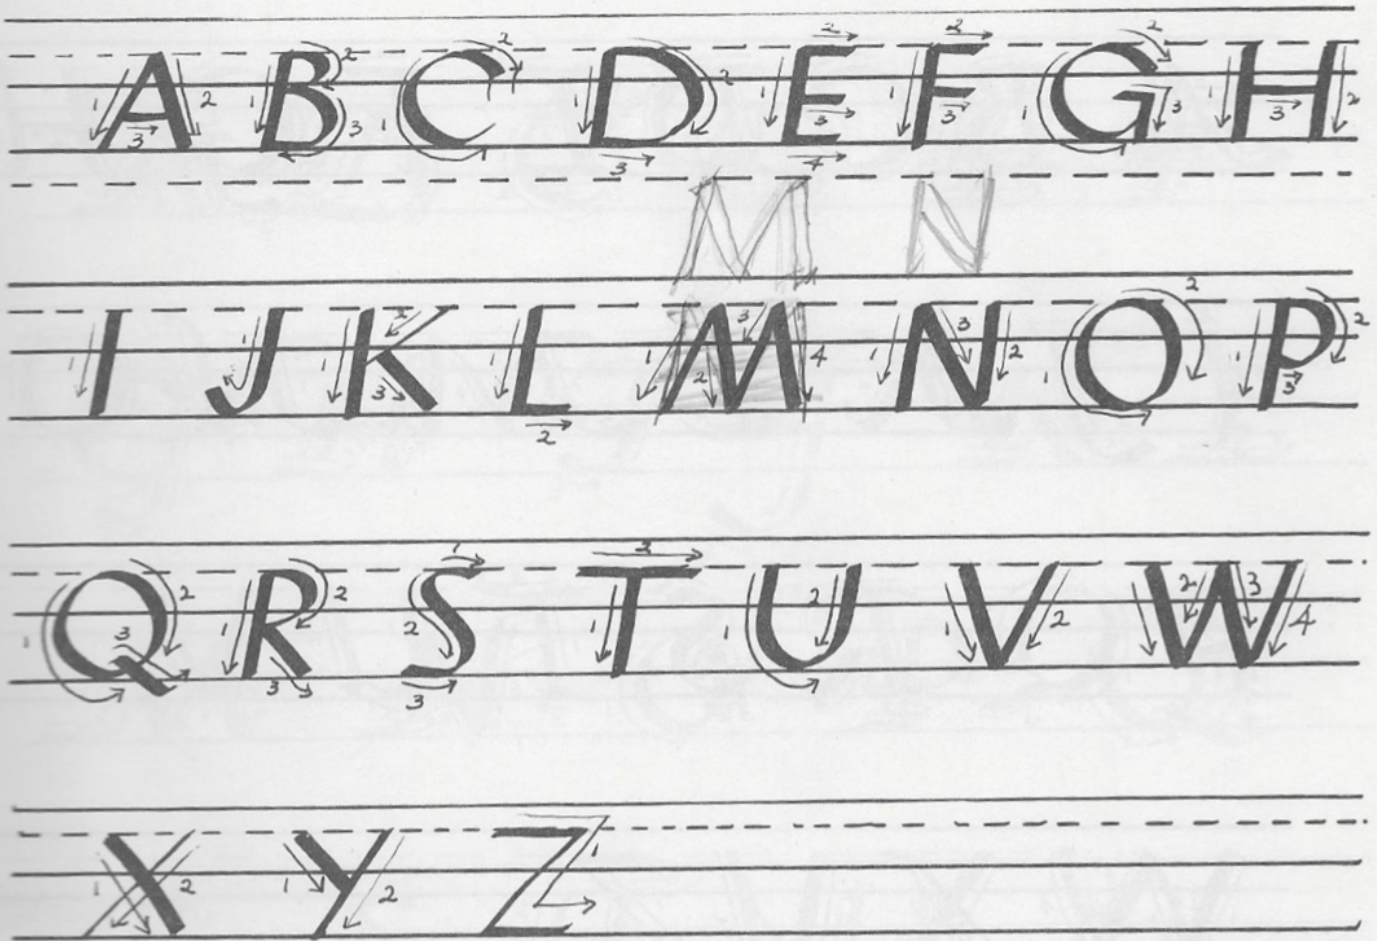 A B C D E F G H
M N
I J K L M N O P
Q R S T U V W
X Y Z